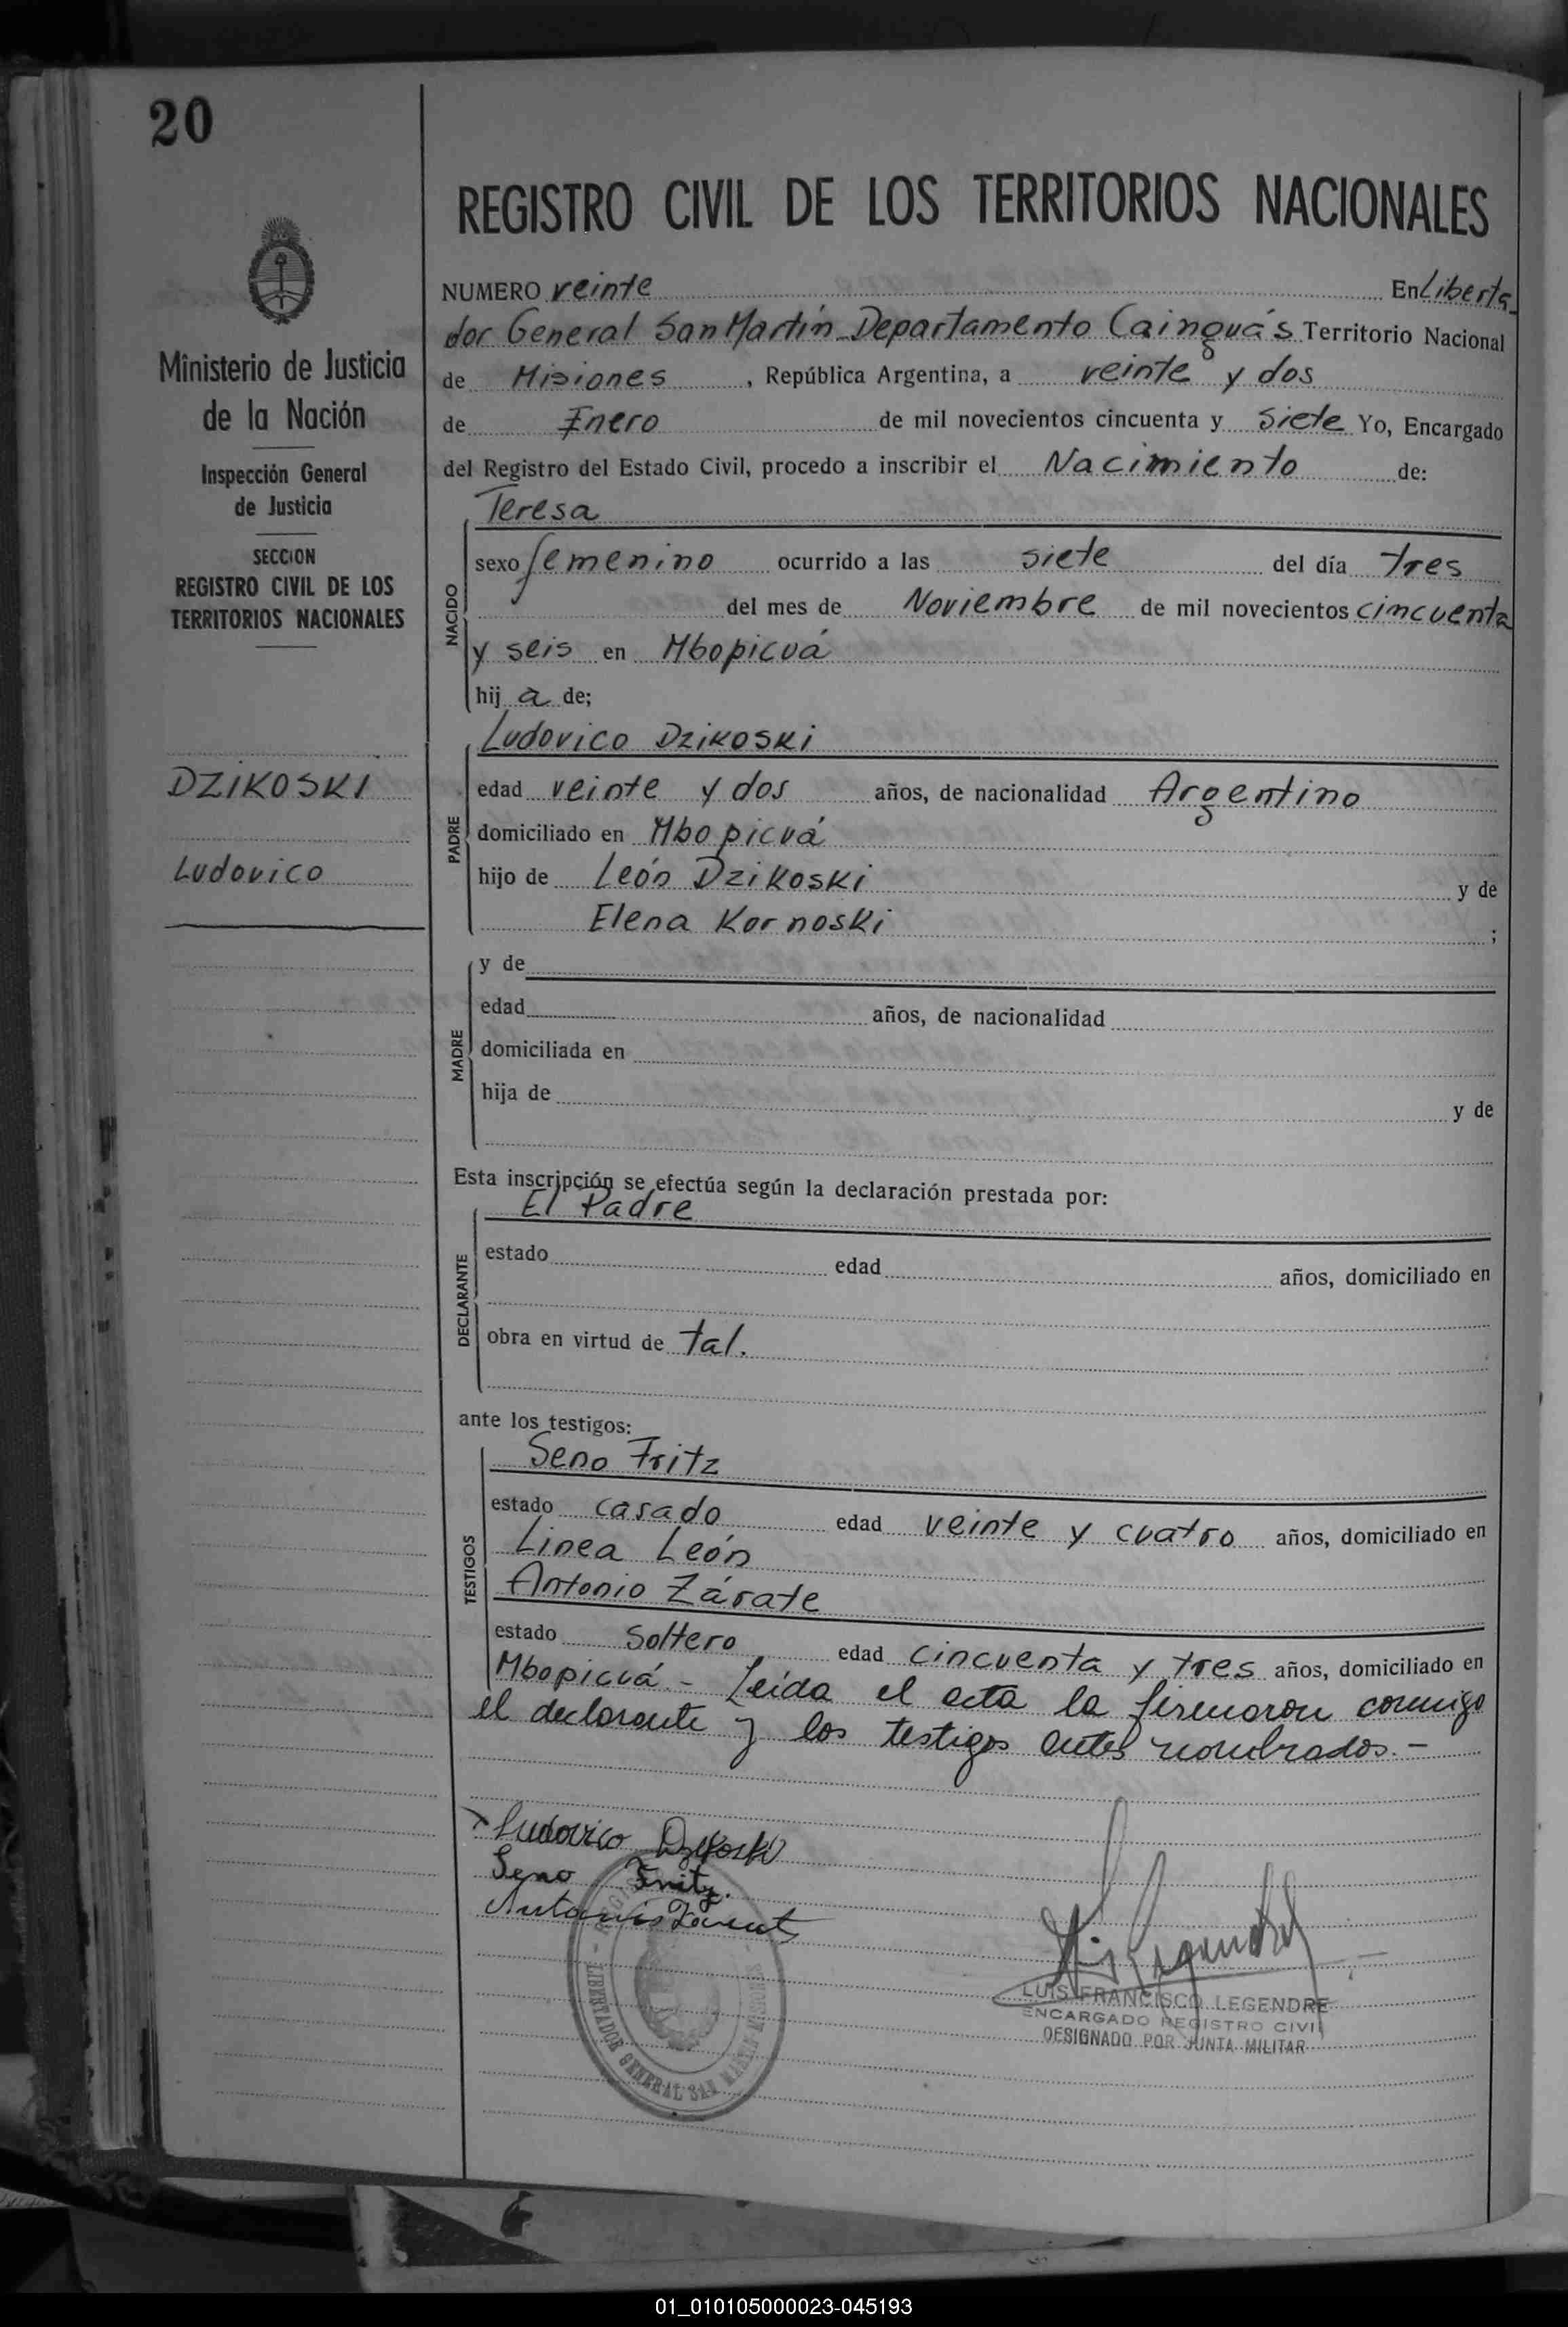 20
Ministerio de Justicia
de la Nación
Inspección General
de Justicia
SECCION
REGISTRO CIVIL DE LOS
TERRITORIOS NACIONALES
DZIKOSKI
Ludovico
REGISTRO CIVIL DE LOS TERRITORIOS NACIONALES
NUMERO veinte En Liberta
dor General San Martín - Departamento Cainguás Territorio Nacional
de Misiones, República Argentina, a veinte y dos
de Enero de mil novecientos cincuenta y siete Yo, Encargado
del Registro del Estado Civil, procedo a inscribir el Nacimiento de:
NACIDO
Teresa
sexo femenino ocurrido a las siete del día tres
del mes de Noviembre de mil novecientos cincuenta
y seis en Mbopicuá
hij a de;
PADRE
Ludovico Dzikoski
edad veinte y dos años, de nacionalidad Argentino
domiciliado en Mbopicuá
hijo de León Dzikoski y de
Elena Kornoski ;
MADRE
y de
edad años, de nacionalidad
domiciliada en
hija de y de
Esta inscripción se efectúa según la declaración prestada por:
DECLARANTE
El Padre
estado edad años, domiciliado en
obra en virtud de tal.
ante los testigos:
TESTIGOS
Seno Fritz
estado casado edad veinte y cuatro años, domiciliado en
Linea León
Antonio Zárate
estado Soltero edad cincuenta y tres años, domiciliado en
Mbopicuá. - Leída el acta la firmaron conmigo
el declarante y los testigos antes nombrados. -
Ludovico Dzikoski
Seno Fritz.
Antonio Zarate
LIBERTADOR GENERAL SAN MARTIN MISIONES
LUIS FRANCISCO LEGENDRE
ENCARGADO REGISTRO CIVIL
DESIGNADO POR JUNTA MILITAR
01_010105000023-045193